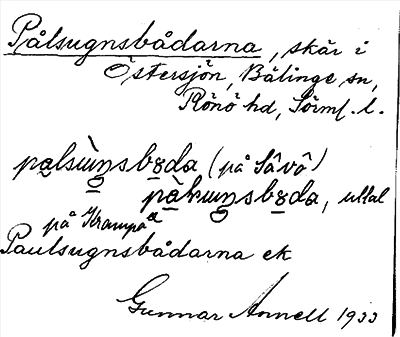 Pålsugnsbådarna, skär i
Östersjön, Bälinge sn,
Rönö hd, Sörml. l.
pa̲lsùŋ̲sbo̲da (på Sävö)
pàku̲ŋ̲sbo̲da, uttal
på Krampö
Paulsugnsbådarna ek
Gunnar Annell 1933